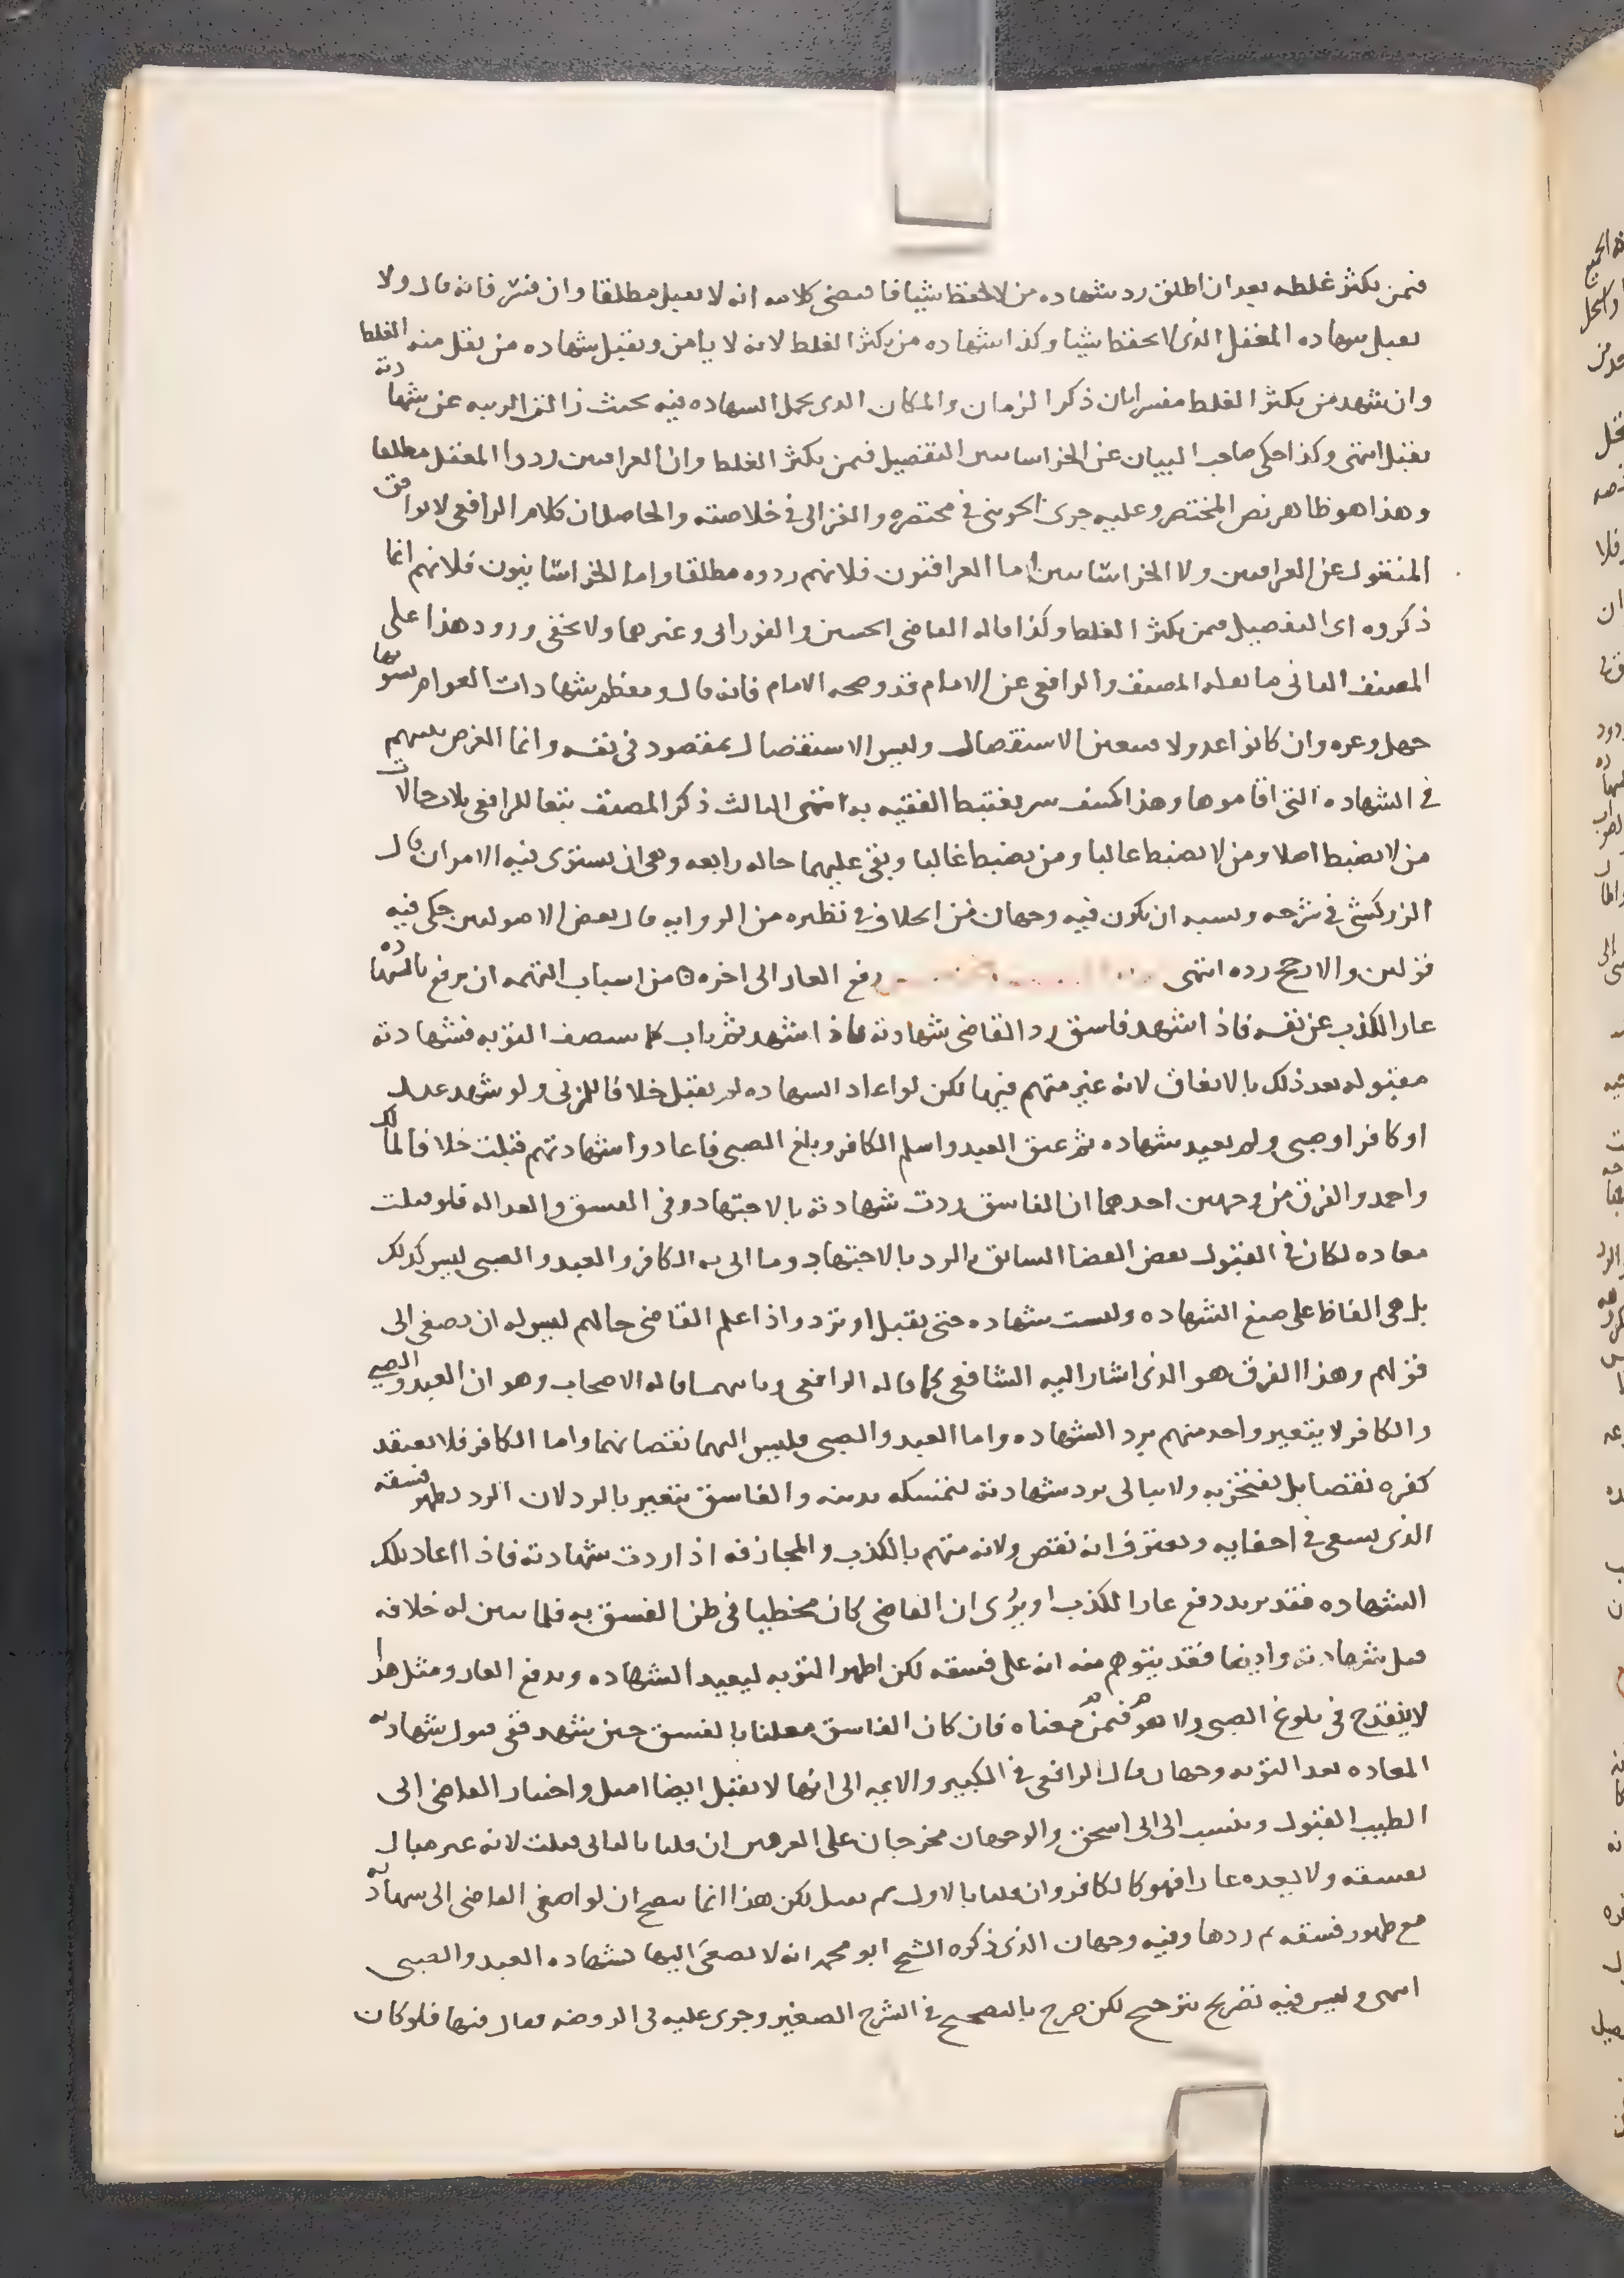 فيمن يكثر غلطه بعد ان اطلق رد شهاده من لا يحفظ شيا فاقتضى كلامه انه لا يقبل مطلقا وان فسر فانه قال ولا
يقبل شهاده المغفل الذى لا يحفظ شيا وكذا شهاده من يكثر الغلط لانه لا يامن ويقبل شهاده من يقل منه الغلط
وان شهد من يكثر الغلط مفسرا بان ذكر الزمان والمكان الذى يحمل الشهاده فيه بحيث زالت الريبه عن شهادته
يقبل انتهى وكذا حكى صاحب البيان عن الخراسانيين التفصيل فيمن يكثر الغلط وان العراقيين ردوا المغفل مطلقا
وهذا هو ظاهر نص المختصر وعليه جرى الجوينى فى مختصره والغزالى فى خلاصته والحاصل ان كلام الرافعى لا يوافق
المنقول عن العراقيين ولا الخراسانيين اما العراقيون فلانهم ردوه مطلقا واما الخراسانيون فلانهم انما
ذكروه اى التفصيل فيمن يكثر الغلط وكذا قاله القاضى الحسين والفورانى وغيرهما ولا يخفى ورود هذا على
المصنف الثانى ما نقله المصنف والرافعى عن الامام قد وضحه الامام فانه قال ومعظم شهادات العوام يشوبها
جهل وغره وان كانوا عدولا فيتعين الاستفصال وليس الاستفصال بمقصود فى نفسه وانما الغرض تثبيتهم
فى الشهاده التى اقاموها وهذا كشف سر يغتبط الفقيه به انتهى الثالث ذكر المصنف تبعا للرافعى ثلاث حالات
من لا يضبط اصلا ومن لا يضبط غالبا ومن يضبط غالبا وبقى عليهما حاله رابعه وهى ان يستوى فيه الامران قال
الزركشى فى شرحه ويشبه ان يكون فيه وجهان من الخلاف فى نظيره من الروايه قال بعض الاصوليين حكى فيه
قولين والارجح رده انتهى دفع العار الى اخره من اسباب التهمه ان يدفع بالشهاده
عار الكذب عن نفسه فاذا شهد فاسق رد القاضى شهادته فاذا شهد ثم تاب كما سنصف التوبه فشهادته
مقبوله بعد ذلك بالاتفاق لانه غير متهم فيها لكن لو اعاد الشهاده لم يقبل خلافا للمزنى ولو شهد عبد
او كافر او صبى ولم يعيد شهاده ثم عتق العبد واسلم الكافر وبلغ الصبى فاعادوا شهادتهم قبلت خلافا لمالك
واحمد والفرق من وجهين احدهما ان الفاسق ردت شهادته بالاجتهاد وفى الفسق والعداله فلو قبلت
معاده لكان فى القبول نقض القضا السابق بالرد بالاجتهاد وما اتى به الكافر والعبد والصبى ليس كذلك
بل هى الفاظ على صيغ الشهاده وليست شهاده حتى يقبل او ترد واذا علم القاضى حالهم ليس له ان يصغى الى
قولهم وهذا الفرق هو الذى اشار اليه الشافعى كما قاله الرافعى وثانيهما قاله الاصحاب وهو ان العبد والصبى
والكافر لا يتعير واحد منهم برد الشهاده واما العبد والصبى فليس اليهما نقصانهما واما الكافر فلا يعتقد
كفره نقصا بل يفتخر به ولا يبالى برد شهادته لتمسكه بدينه والفاسق يتعير بالرد لان الرد يظهر فسقه
الذى يسعى فى اخفايه ويعترف انه نقص ولانه متهم بالكذب والمجازفه اذا ردت شهادته فاذا اعاد تلك
الشهاده فقد يريد دفع عار الكذب او يرى ان القاضى كان مخطيا فى ظن الفسق به فلما تبين له خلافه
قبل شهادته وايضا فقد يتوهم منه انه على فسقه لكن اظهر التوبه ليعيد الشهاده ويدفع العار ومثل هذا
لا ينقدح فى بلوغ الصبى ولا هو فيمن معناه فان كان الفاسق معلنا بالفسق حين شهد ففى قبول شهادته
المعاده بعد التوبه وجهان قال الرافعى فى الكبير والايمه الى انها لا يقبل ايضا اميل واختيار القاضى ابى
الطيب القبول وينسب الى ابى اسحق والوجهان مخرجان على الفرقين ان قلنا بالثانى قبلت لانه غير مبال
بفسقه ولا يعده عارا فهو كالكافر وان قلنا بالاول لم يقبل لكن هذا انما يصح ان لو اصغى القاضى الى شهادته
مع ظهور فسقه ثم ردها وفيه وجهان الذى ذكره الشيخ ابو محمد انه لا يصغى اليها كشهاده العبد والصبى
انتهى وليس فيه تصريح بترجيح لكن صرح بالتصحيح فى الشرح الصغير وجرى عليه فى الروضه فقال فيها فلو كان